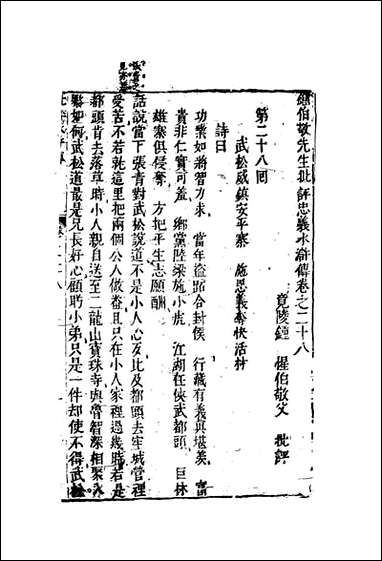 鍾伯敬先生批評忠義水滸傳卷之二十八
竟陵鍾 惺伯敬父 批評
第二十八回
武松威鎮安平寨 施恩義奪快活林
詩曰
功業如將智力求 當年盜跖合封侯 行藏有義真堪羨 富
貴非仁實可羞 鄉黨陸梁施小虎 江湖任俠武都頭 巨林
雄寨俱侵奪 方把平生志願酬
話說當下張青對武松說道不是小人心歹比及都頭去牢城營裡
受苦不若就這里把兩個公人做番且只在小人家裡過幾時若是
都頭肯去落草時小人親自送至二龍山寶珠寺與魯智深相聚入
夥如何武松道最是兄長好心顧盼小弟只是一件却使不得武松